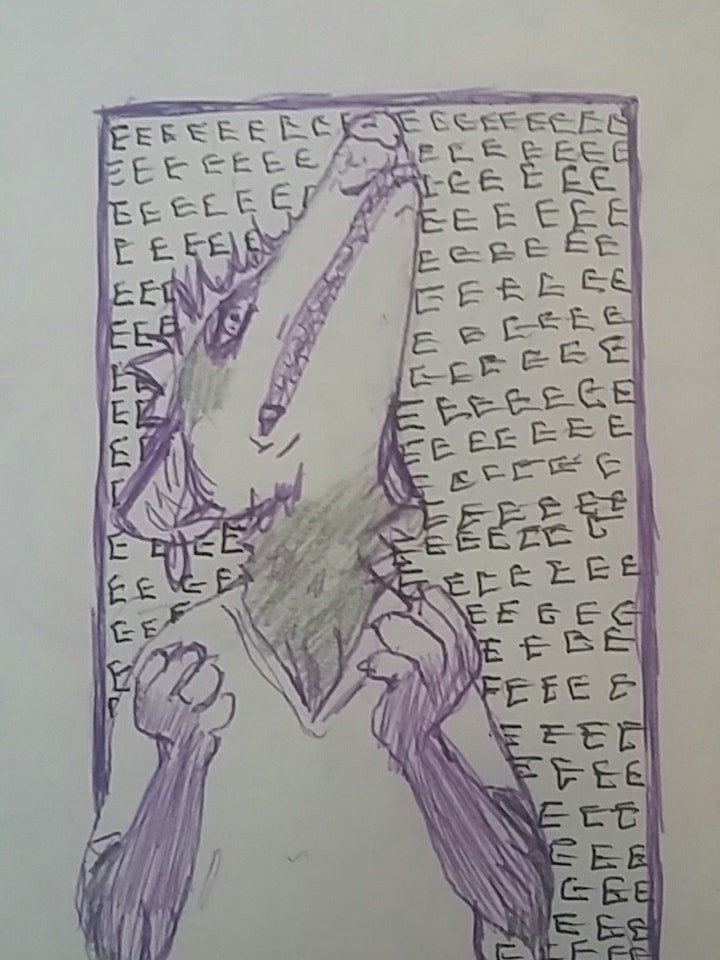 EEEEEEEEEEEEEEEEE
EEEEEEEEEEEEEE
EEEEEEEEEEEEE
EEEEEEEEEEE
EEEEEEEEE
EEEEEEEEE
EEEEEEEE
EEEEEEEE
EEEEEEEEE
EEEEEEEEE
EEEEEE
EEEEEE
EEEEEEEEEE
EEEEEEEEEE
EEEEEEEE
EEEEE
EEEEEE
EEEE
EEEE
EEE
EEE
EEE
EEE
EEEE